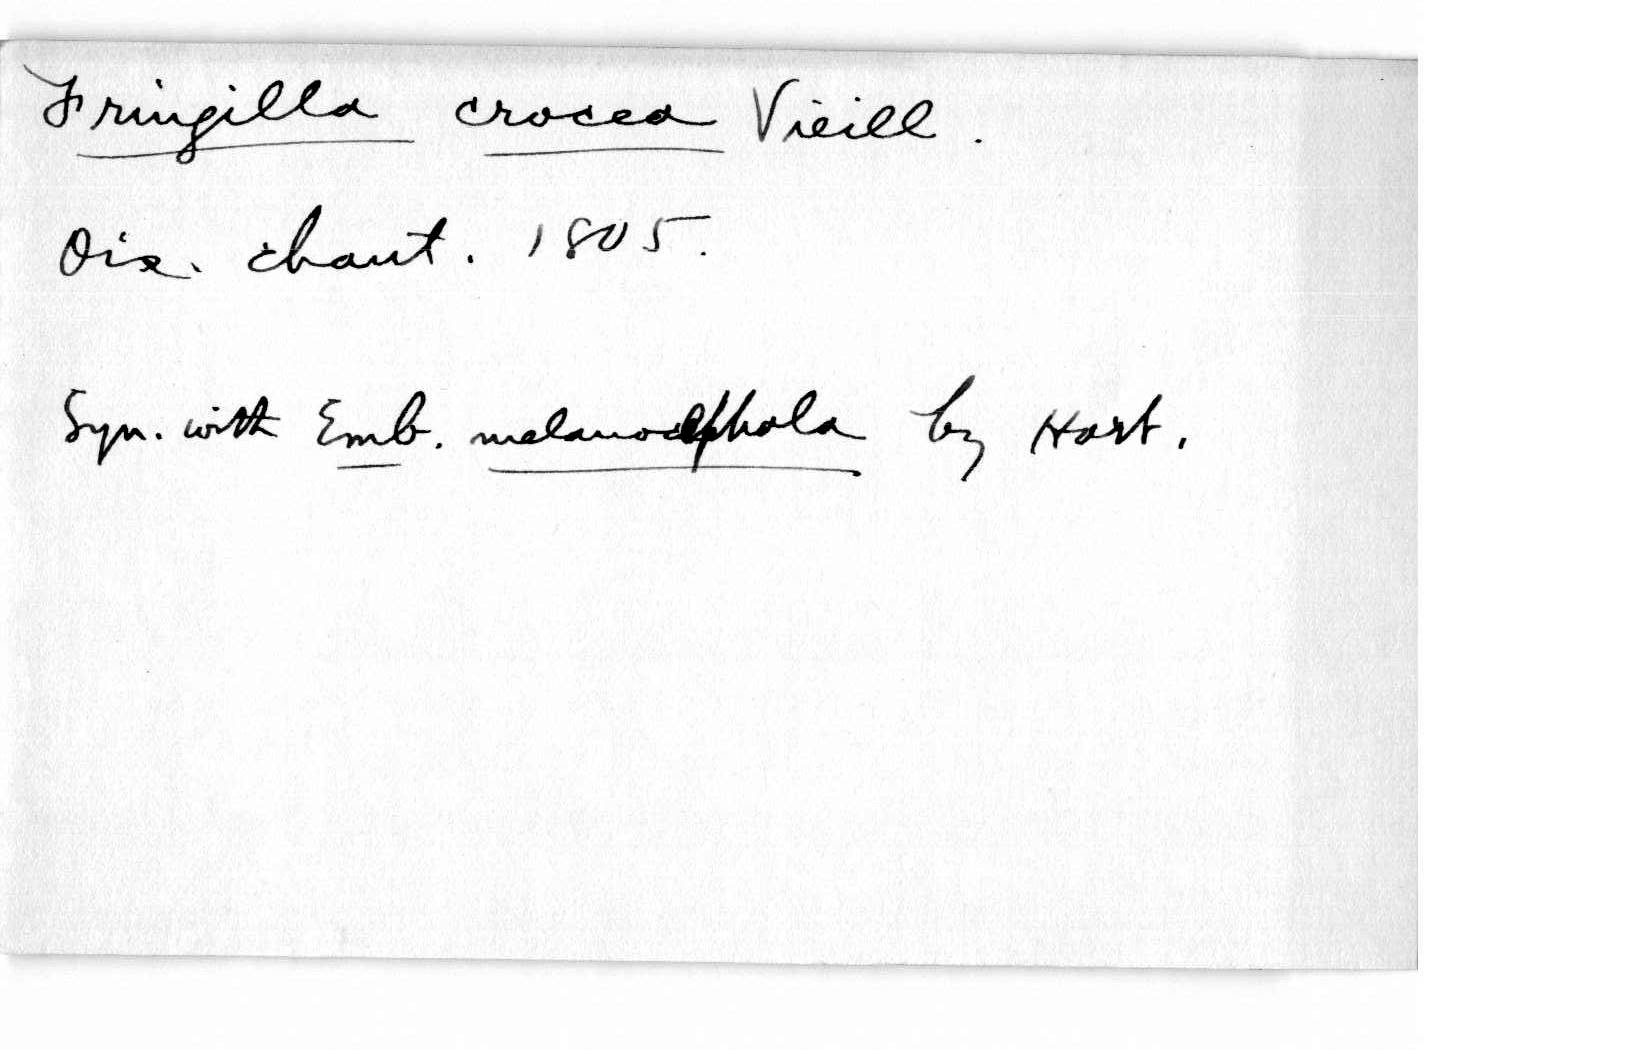 Fringilla crocea Vieill.
Ois. chant. 1805.
Syn. with Emb. melanocephala by Hart.